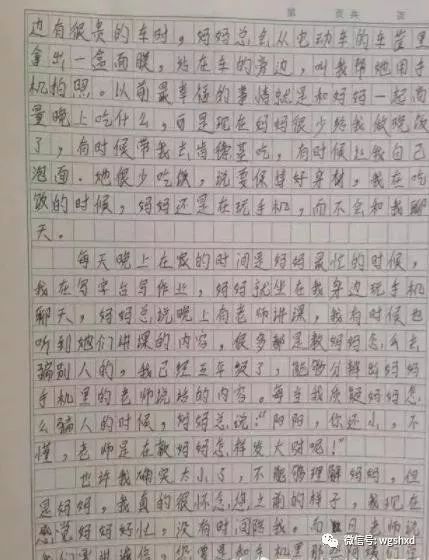 第 页 共 页
边有很贵的车时，妈妈总会从电动车的车筐里
拿出一盒面膜，站在车的旁边，叫我帮她用手
机拍照。以前最幸福的事情就是和妈妈一起商
量晚上吃什么，可是现在妈妈很少给我做晚饭
了，有时候带我去肯德基吃，有时候让我自己
泡面。她很少吃饭，说要保持好身材，我在吃
饭的时候，妈妈还是在玩手机，而不会和我聊
天。
每天晚上在家的时间是妈妈最忙的时候，
我在写字台写作业，妈妈就坐在我身边玩手机
聊天，妈妈总说晚上有老师讲课，我有时候也
听到她们讲课的内容，很多都是教妈妈怎么去
骗别人的，我已经五年级了，能够分辨出妈妈
手机里的老师说话的内容。每当我质疑妈妈怎
么骗人的时候，妈妈总说："阳阳，你还小，不
懂，老师是在教妈妈怎样发大财呢！"
也许我确实太小了，不能够理解妈妈，但
是妈妈，我真的很怀念您之前的样子，我现在
感觉妈妈好忙，没有时间陪我。向日老师说
微信号：wgshxd